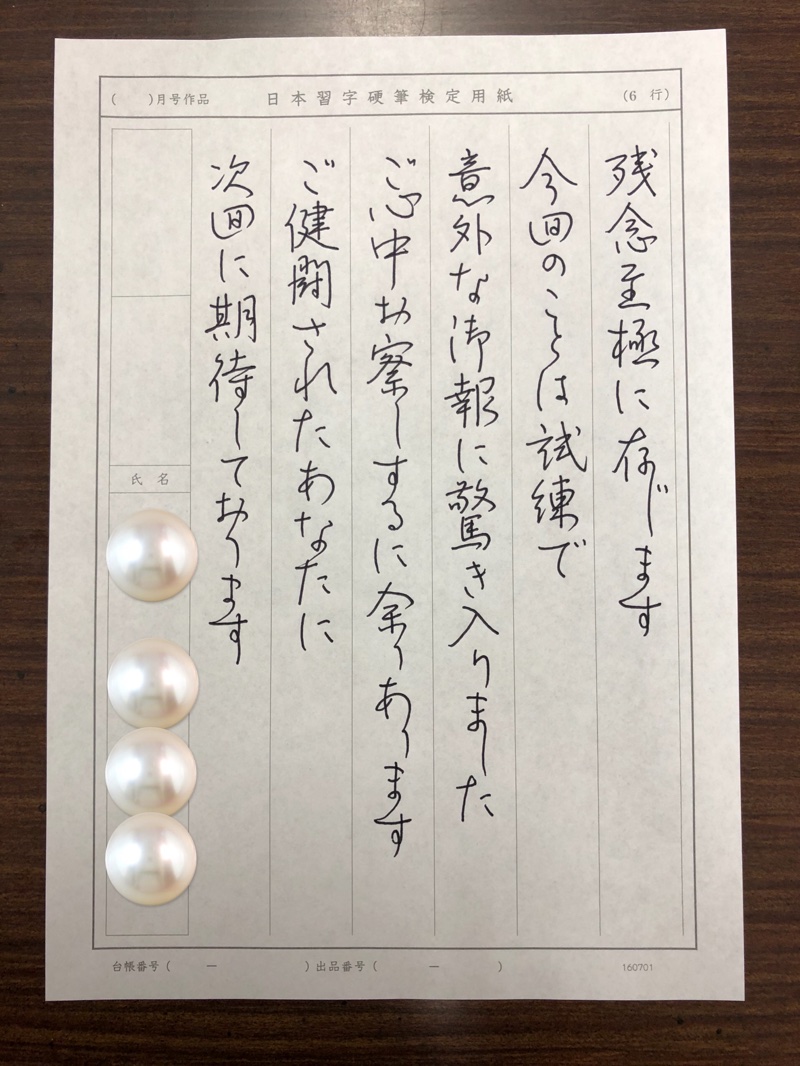 ( )月号作品 日本習字硬筆検定用紙 (6 行)
残念至極に存じます
今回のことは試練で
意外な御報に驚き入りました
ご心中お察しするに余りあります
ご健闘されたあなたに
次回に期待しております
氏名
台帳番号( ー )出品番号( ー )
160701